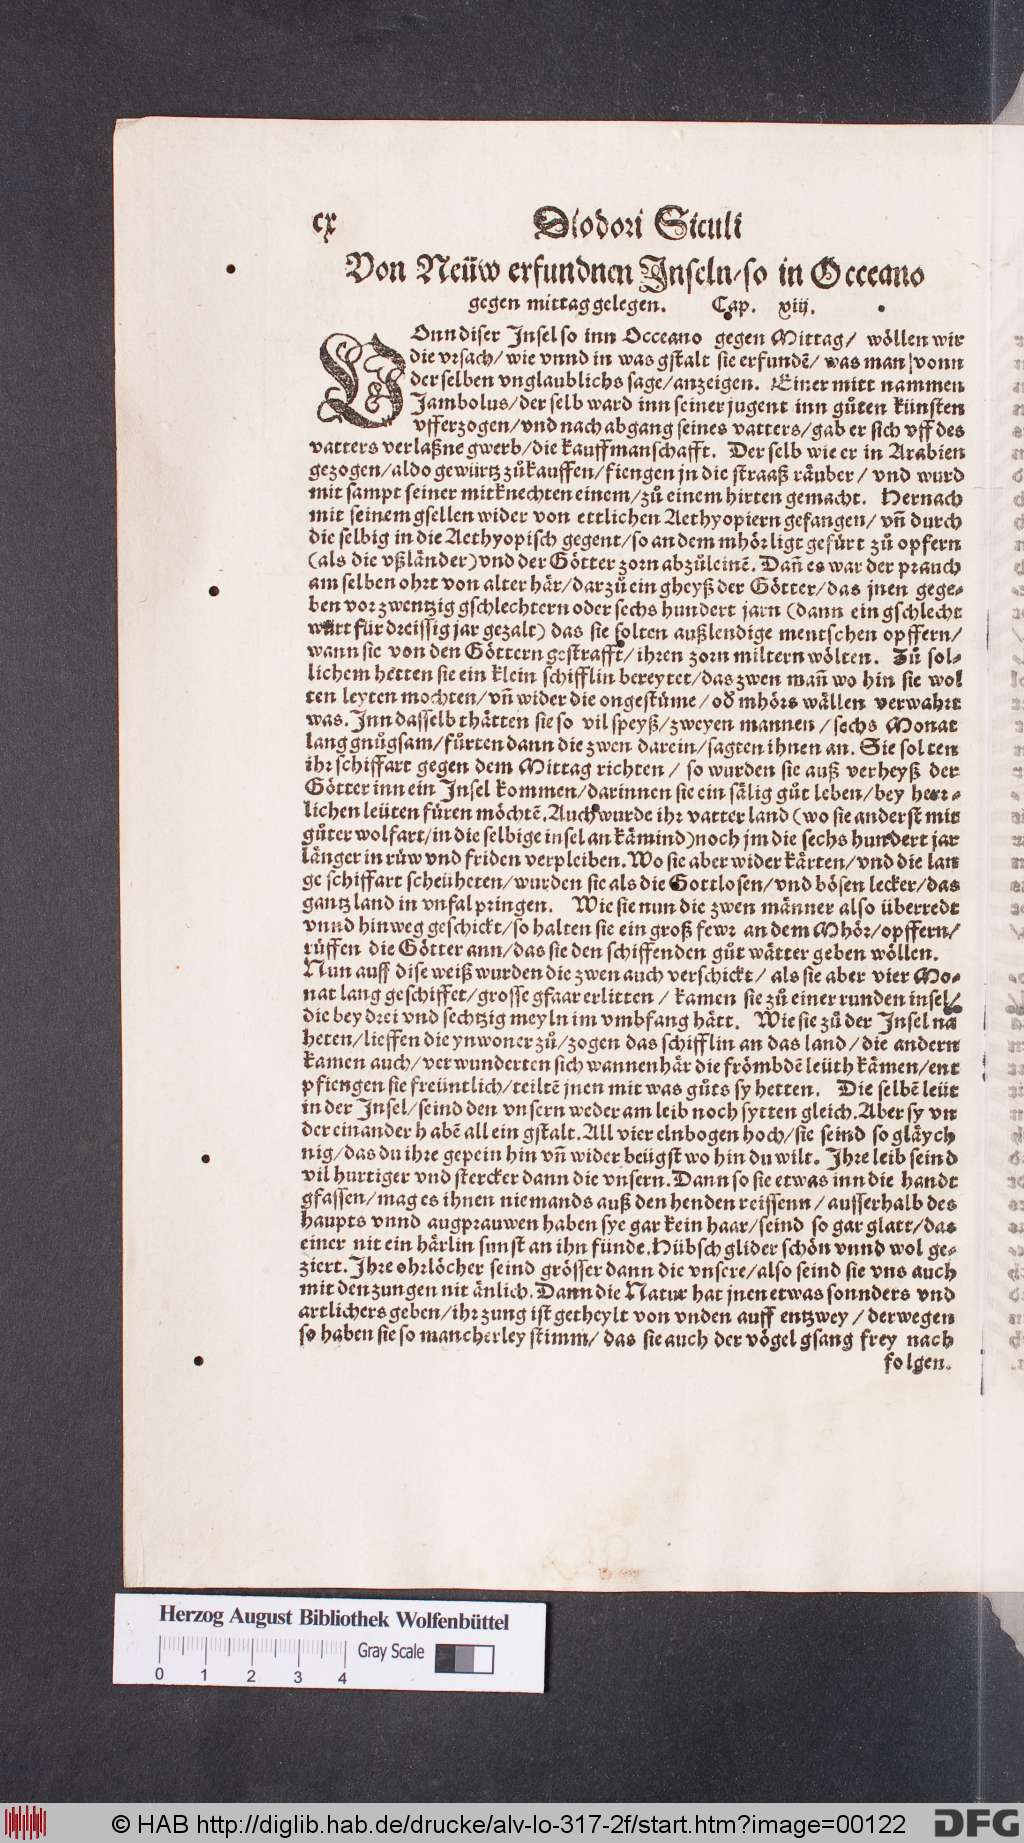 cx Diodori Siculi
Von Neüw erfundnen Inseln/so in Occeano
gegen mittag gelegen. Cap. xiij.
VOnn diser Insel so inn Occeano gegen Mittag/ wöllen wir
die vrsach/ wie vnnd in was gstalt sie erfundē/ was man vonn
der selben vnglaublichs sage/anzeigen. Einer mitt nammen
Jambolus/der selb ward inn seiner jugent inn gůten künsten
vfferzogen/vnd nach abgang seines vatters/gab er sich vff des
vatters verlaßne gwerb/die kauffmanschafft. Der selb wie er in Arabien
gezogen/aldo gewürtz zůkauffen/fiengen jn die straaß räuber/ vnd wurd
mit sampt seiner mitknechten einem/zů einem hirten gemacht. Hernach
mit seinem gsellen wider von ettlichen Aethyopiern gefangen/ vn̄ durch
die selbig in die Aethyopisch gegent/so an dem mhör ligt gefürt zů opfern
(als die vßländer)vnd der Götter zorn abzůleinē. Dan̄ es war der prauch
am selben ohrt von alter här/darzů ein gheyß der Götter/das jnen gege⸗
ben vor zwentzig gschlechtern oder sechs hundert jarn (dann ein gschlecht
würt für dreissig jar gezalt) das sie solten außlendige mentschen opffern/
wann sie von den Göttern gestrafft/ ihren zorn miltern wölten. Zů sol⸗
lichem hetten sie ein klein schifflin bereytet/das zwen man̄ wo hin sie wol
ten leyten mochten/vn̄ wider die ongestüme/ od̄ mhörs wällen verwahrt
was. Inn dasselb thätten sie so vil speyß/zweyen mannen/sechs Monat
lang gnůgsam/fürten dann die zwen darein/sagten ihnen an. Sie solten
ihr schiffart gegen dem Mittag richten/ so wurden sie auß verheyß der
Götter inn ein Insel kommen/darinnen sie ein sälig gůt leben/bey herr⸗
lichen leüten füren möchtē. Auch wurde ihr vatter land (wo sie anderst mit
gůter wolfart/in die selbige insel an kämind)noch jm die sechs hundert jar
länger in rüw vnd friden verpleiben. Wo sie aber wider kärten/vnd die lan
ge schiffart scheüheten/wurden sie als die Gottlosen/vnd bösen lecker/das
gantz land in vnfal pringen. Wie sie nun die zwen männer also überredt
vnnd hinweg geschickt/so halten sie ein groß fewr an dem Mhör/opffern/
rüffen die Götter ann/das sie den schiffenden gůt wätter geben wöllen.
Nun auff dise weiß wurden die zwen auch verschickt/ als sie aber vier Mo⸗
nat lang geschiffet/grosse gfaar erlitten/ kamen sie zů einer runden insel/
die bey drei vnd sechtzig meyln im vmbfang hätt. Wie sie zů der Insel na
heten/lieffen die ynwoner zů/zogen das schifflin an das land/die andern
kamen auch/verwunderten sich wannenhär die frömbdē leüth kämen/ent
pfiengen sie freüntlich/teiltē jnen mit was gůts sy hetten. Die selbē leüt
in der Insel/seind den vnsern weder am leib noch sytten gleich. Aber sy vn
der einander habē all ein gstalt. All vier elnbogen hoch/sie seind so gläych
nig/das du ihre gepein hin vn̄ wider beügst wo hin du wilt. Ihre leib seind
vil hurtiger vnd stercker dann die vnsern. Dann so sie etwas inn die handt
gfassen/mag es ihnen niemands auß den henden reissenn/ausserhalb des
haupts vnnd augprauwen haben sye gar kein haar/seind so gar glatt/das
einer nit ein härlin sunst an ihn fünde. Hübsch glider schön vnnd wol ge⸗
ziert. Ihre ohrlöcher seind grösser dann die vnsere/also seind sie vns auch
mit den zungen nit änlich. Dann die Natur hat jnen etwas sonnders vnd
artlichers geben/ihr zung ist getheylt von vnden auff entzwey/derwegen
so haben sie so mancherley stimm/ das sie auch der vögel gsang frey nach
folgen.
Herzog August Bibliothek Wolfenbüttel
Gray Scale
0 1 2 3 4
© HAB http://diglib.hab.de/drucke/alv-lo-317-2f/start.htm?image=00122 DFG